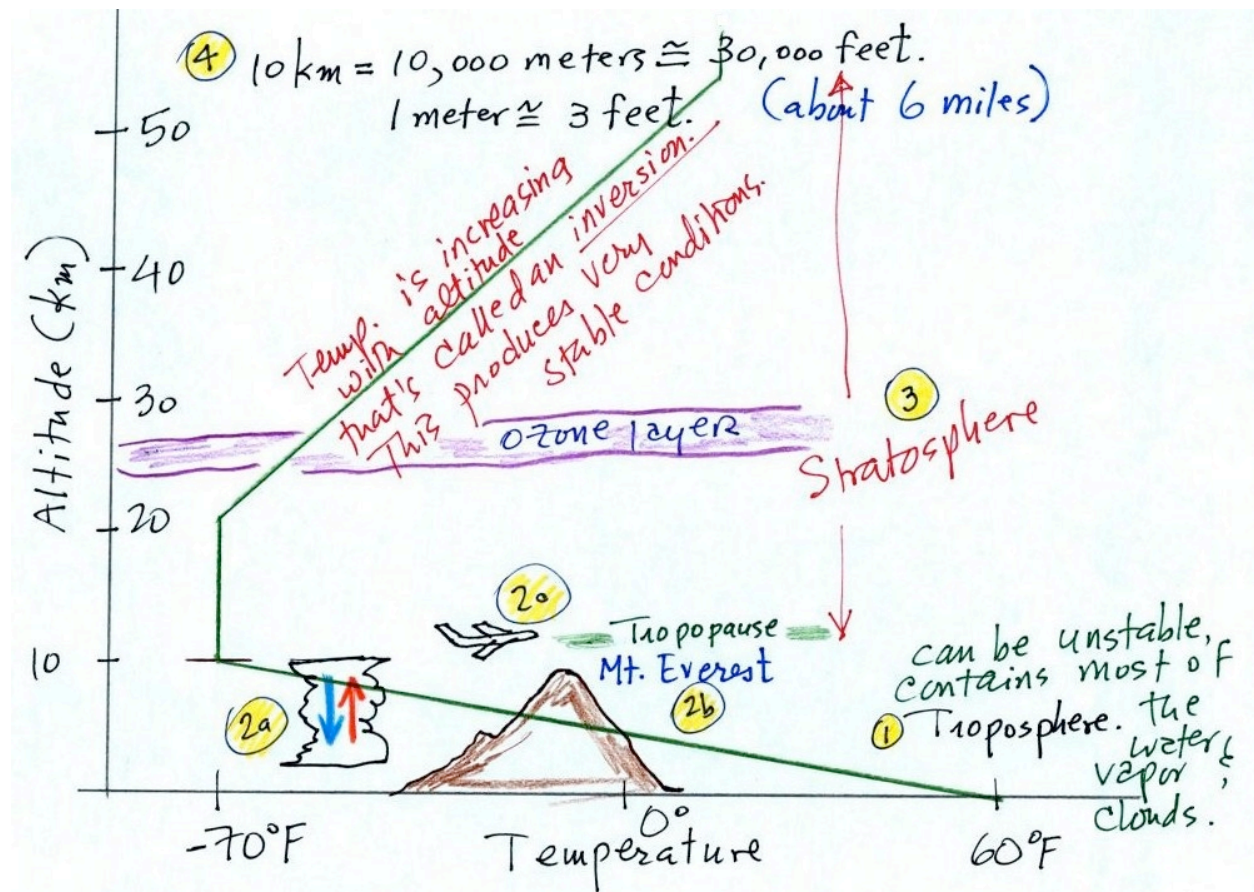 ④ 10 km = 10,000 meters ≅ 30,000 feet.
1 meter ≅ 3 feet.
(about 6 miles)
50
40
30
20
10
Altitude (km)
Temp. is increasing
with altitude
that's called an inversion.
This produces very
stable conditions.
ozone layer
3
Stratosphere
2c
Tropopause
Mt. Everest
2a
2b
can be unstable,
contains most of
① Troposphere. the
water
vapor &
clouds.
-70°F
0°
60°F
Temperature